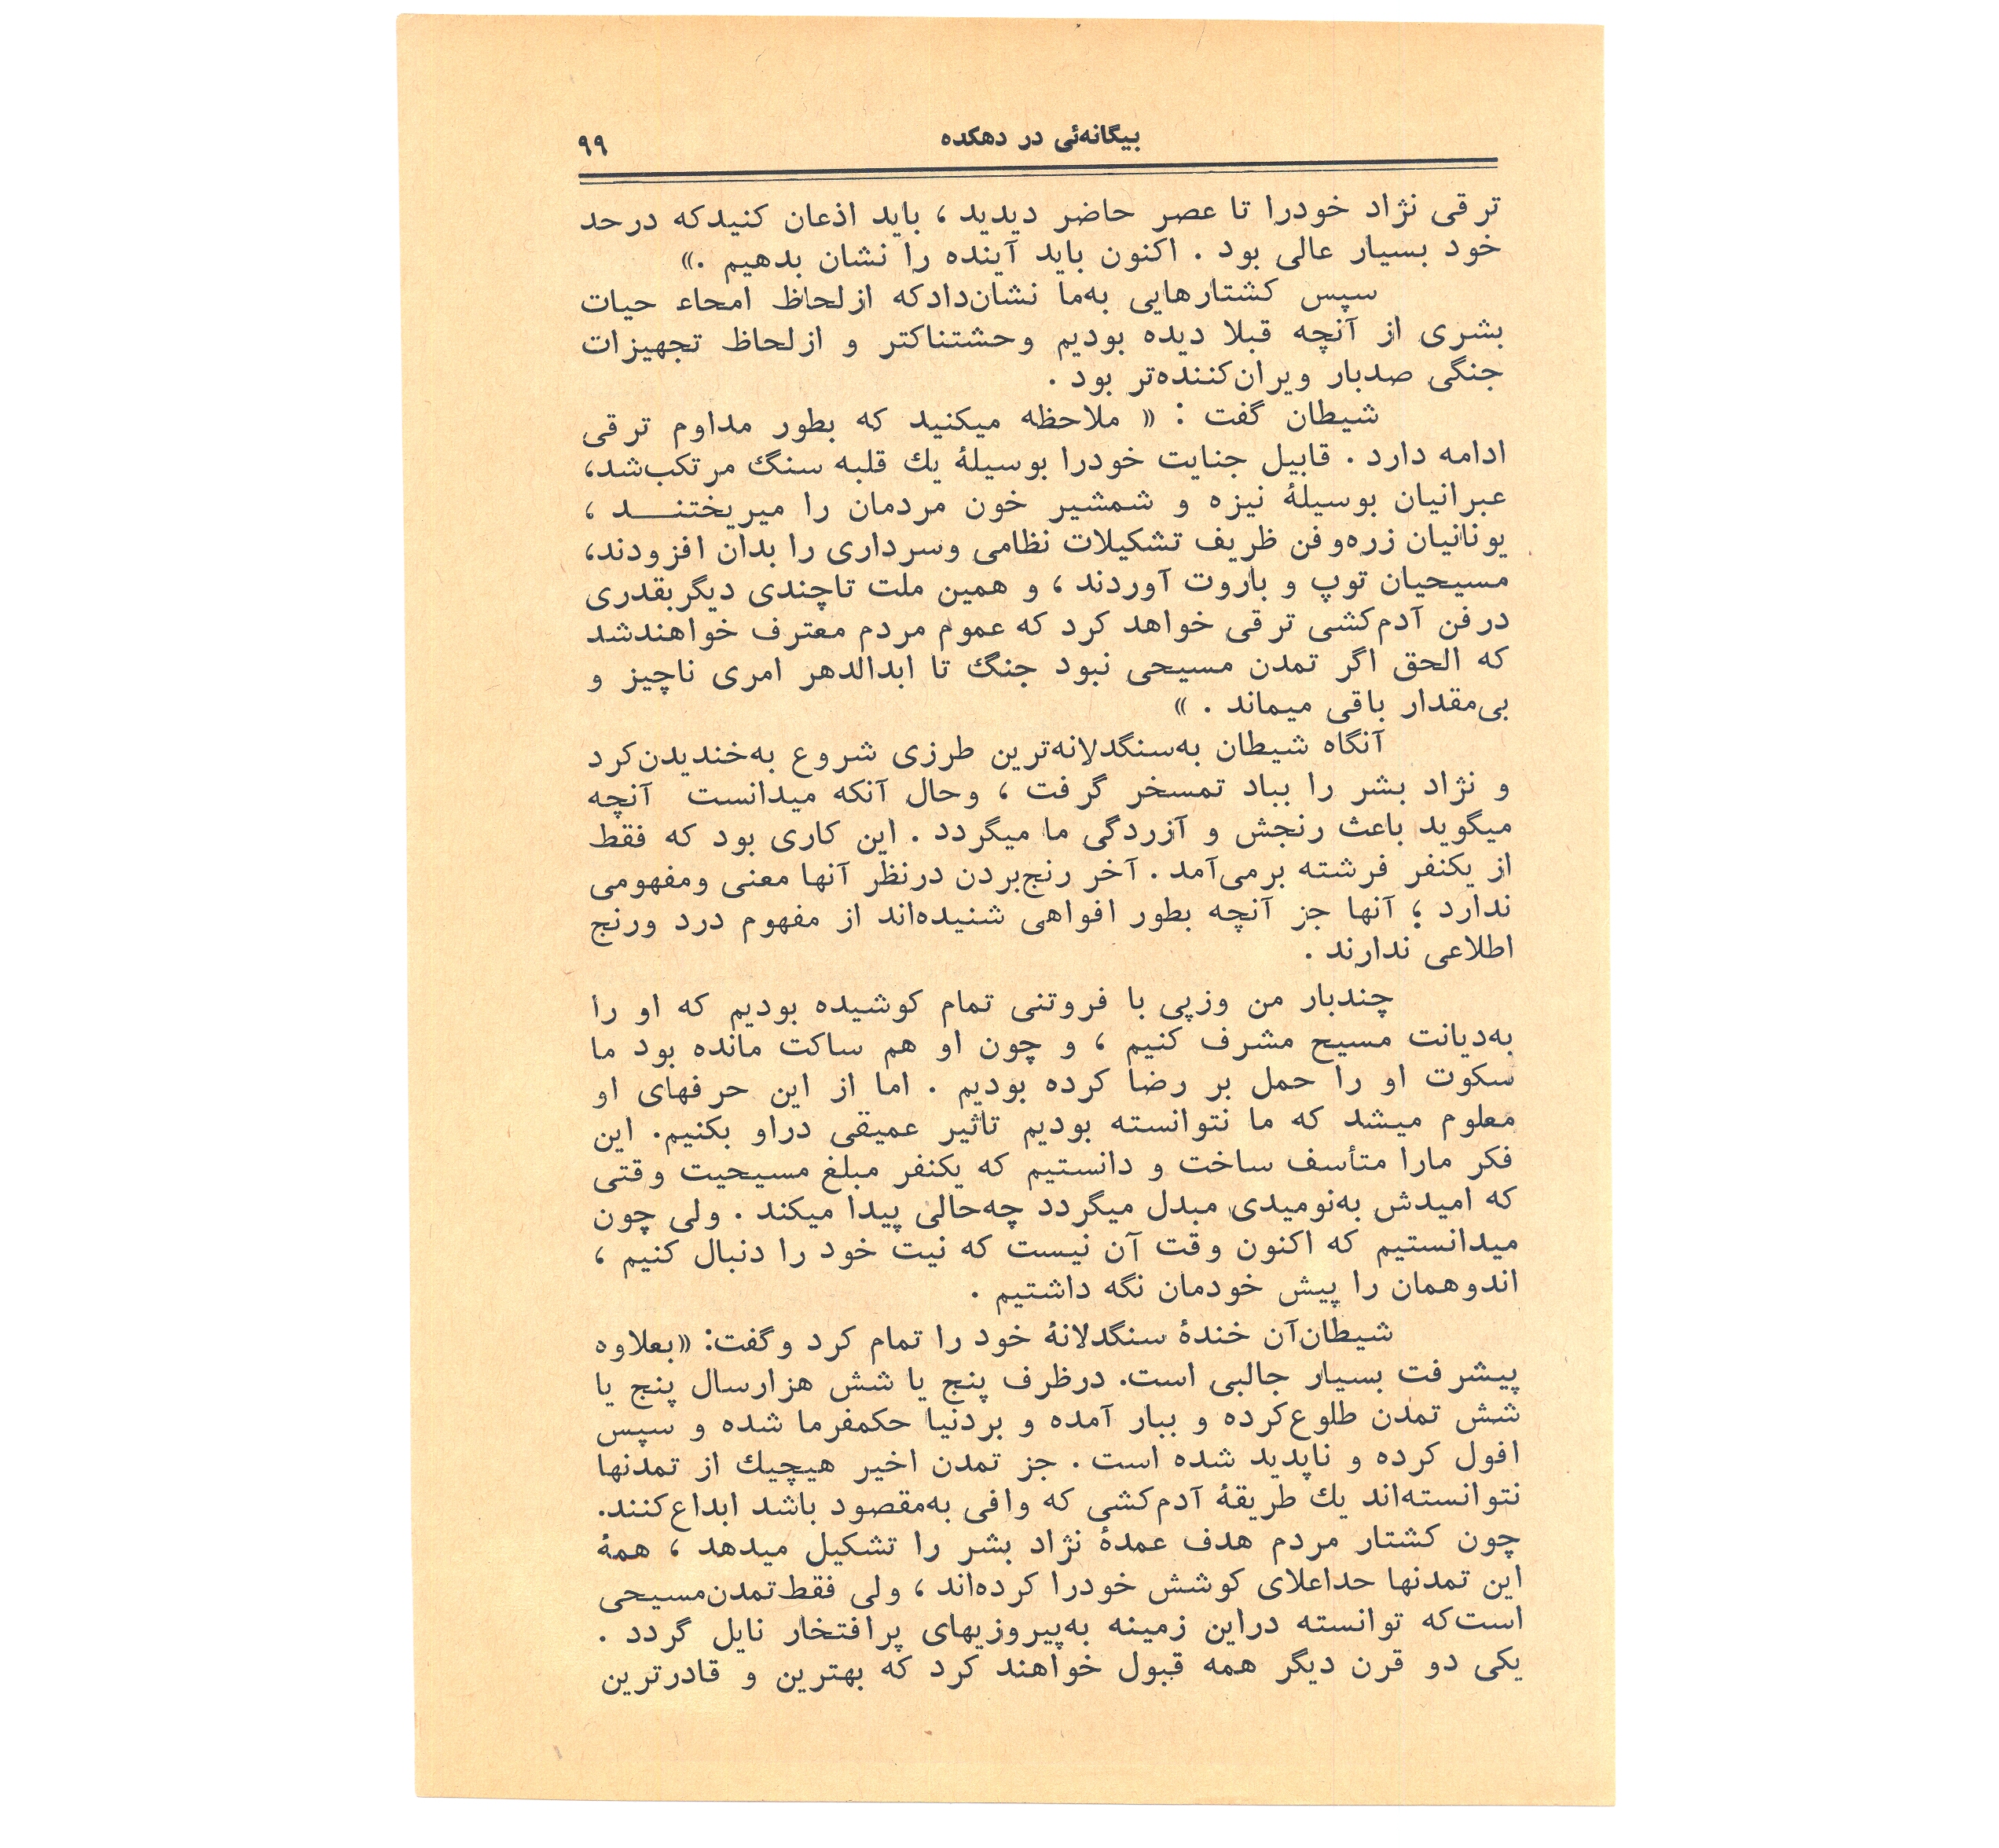 بیگانه‌ئی در دهکده
۹۹
ترقی نژاد خودرا تا عصر حاضر دیدید ، باید اذعان کنیدکه درحد
خود بسیار عالی بود . اکنون باید آینده را نشان بدهیم .»
سپس کشتارهایی به‌ما نشان‌دادکه ازلحاظ امحاء حیات
بشری از آنچه قبلا دیده بودیم وحشتناکتر و ازلحاظ تجهیزات
جنگی صدبار ویران‌کننده‌تر بود .
شیطان گفت : « ملاحظه میکنید که بطور مداوم ترقی
ادامه دارد . قابیل جنایت خودرا بوسیلهٔ یك قلبه سنگ مرتکب‌شد،
عبرانیان بوسیلهٔ نیزه و شمشیر خون مردمان را میریختنــــد ،
یونانیان زره‌وفن ظریف تشکیلات نظامی وسرداری را بدان افزودند،
مسیحیان توپ و باروت آوردند ، و همین ملت تاچندی دیگربقدری
درفن آدم‌کشی ترقی خواهد کرد که عموم مردم معترف خواهندشد
که الحق اگر تمدن مسیحی نبود جنگ تا ابدالدهر امری ناچیز و
بی‌مقدار باقی میماند . »
آنگاه شیطان به‌سنگدلانه‌ترین طرزی شروع به‌خندیدن‌کرد
و نژاد بشر را بباد تمسخر گرفت ، وحال آنکه میدانست آنچه
میگوید باعث رنجش و آزردگی ما میگردد . این کاری بود که فقط
از یکنفر فرشته برمی‌آمد . آخر رنج‌بردن درنظر آنها معنی ومفهومی
ندارد ؛ آنها جز آنچه بطور افواهی شنیده‌اند از مفهوم درد ورنج
اطلاعی ندارند .
چندبار من وزپی با فروتنی تمام کوشیده بودیم که او را
به‌دیانت مسیح مشرف کنیم ، و چون او هم ساکت مانده بود ما
سکوت او را حمل بر رضا کرده بودیم . اما از این حرفهای او
معلوم میشد که ما نتوانسته بودیم تاثیر عمیقی دراو بکنیم. این
فکر مارا متأسف ساخت و دانستیم که یکنفر مبلغ مسیحیت وقتی
که امیدش به‌نومیدی مبدل میگردد چه‌حالی پیدا میکند . ولی چون
میدانستیم که اکنون وقت آن نیست که نیت خود را دنبال کنیم ،
اندوهمان را پیش خودمان نگه داشتیم .
شیطان‌آن خندهٔ سنگدلانهٔ خود را تمام کرد وگفت: «بعلاوه
پیشرفت بسیار جالبی است. درظرف پنج یا شش هزارسال پنج یا
شش تمدن طلوع‌کرده و ببار آمده و بردنیا حکمفرما شده و سپس
افول کرده و ناپدید شده است . جز تمدن اخیر هیچیك از تمدنها
نتوانسته‌اند یك طریقهٔ آدم‌کشی که وافی به‌مقصود باشد ابداع‌کنند.
چون کشتار مردم هدف عمدهٔ نژاد بشر را تشکیل میدهد ، همهٔ
این تمدنها حداعلای کوشش خودرا کرده‌اند ، ولی فقط‌تمدن‌مسیحی
است‌که توانسته دراین زمینه به‌پیروزیهای پرافتخار نایل گردد .
یکی دو قرن دیگر همه قبول خواهند کرد که بهترین و قادرترین